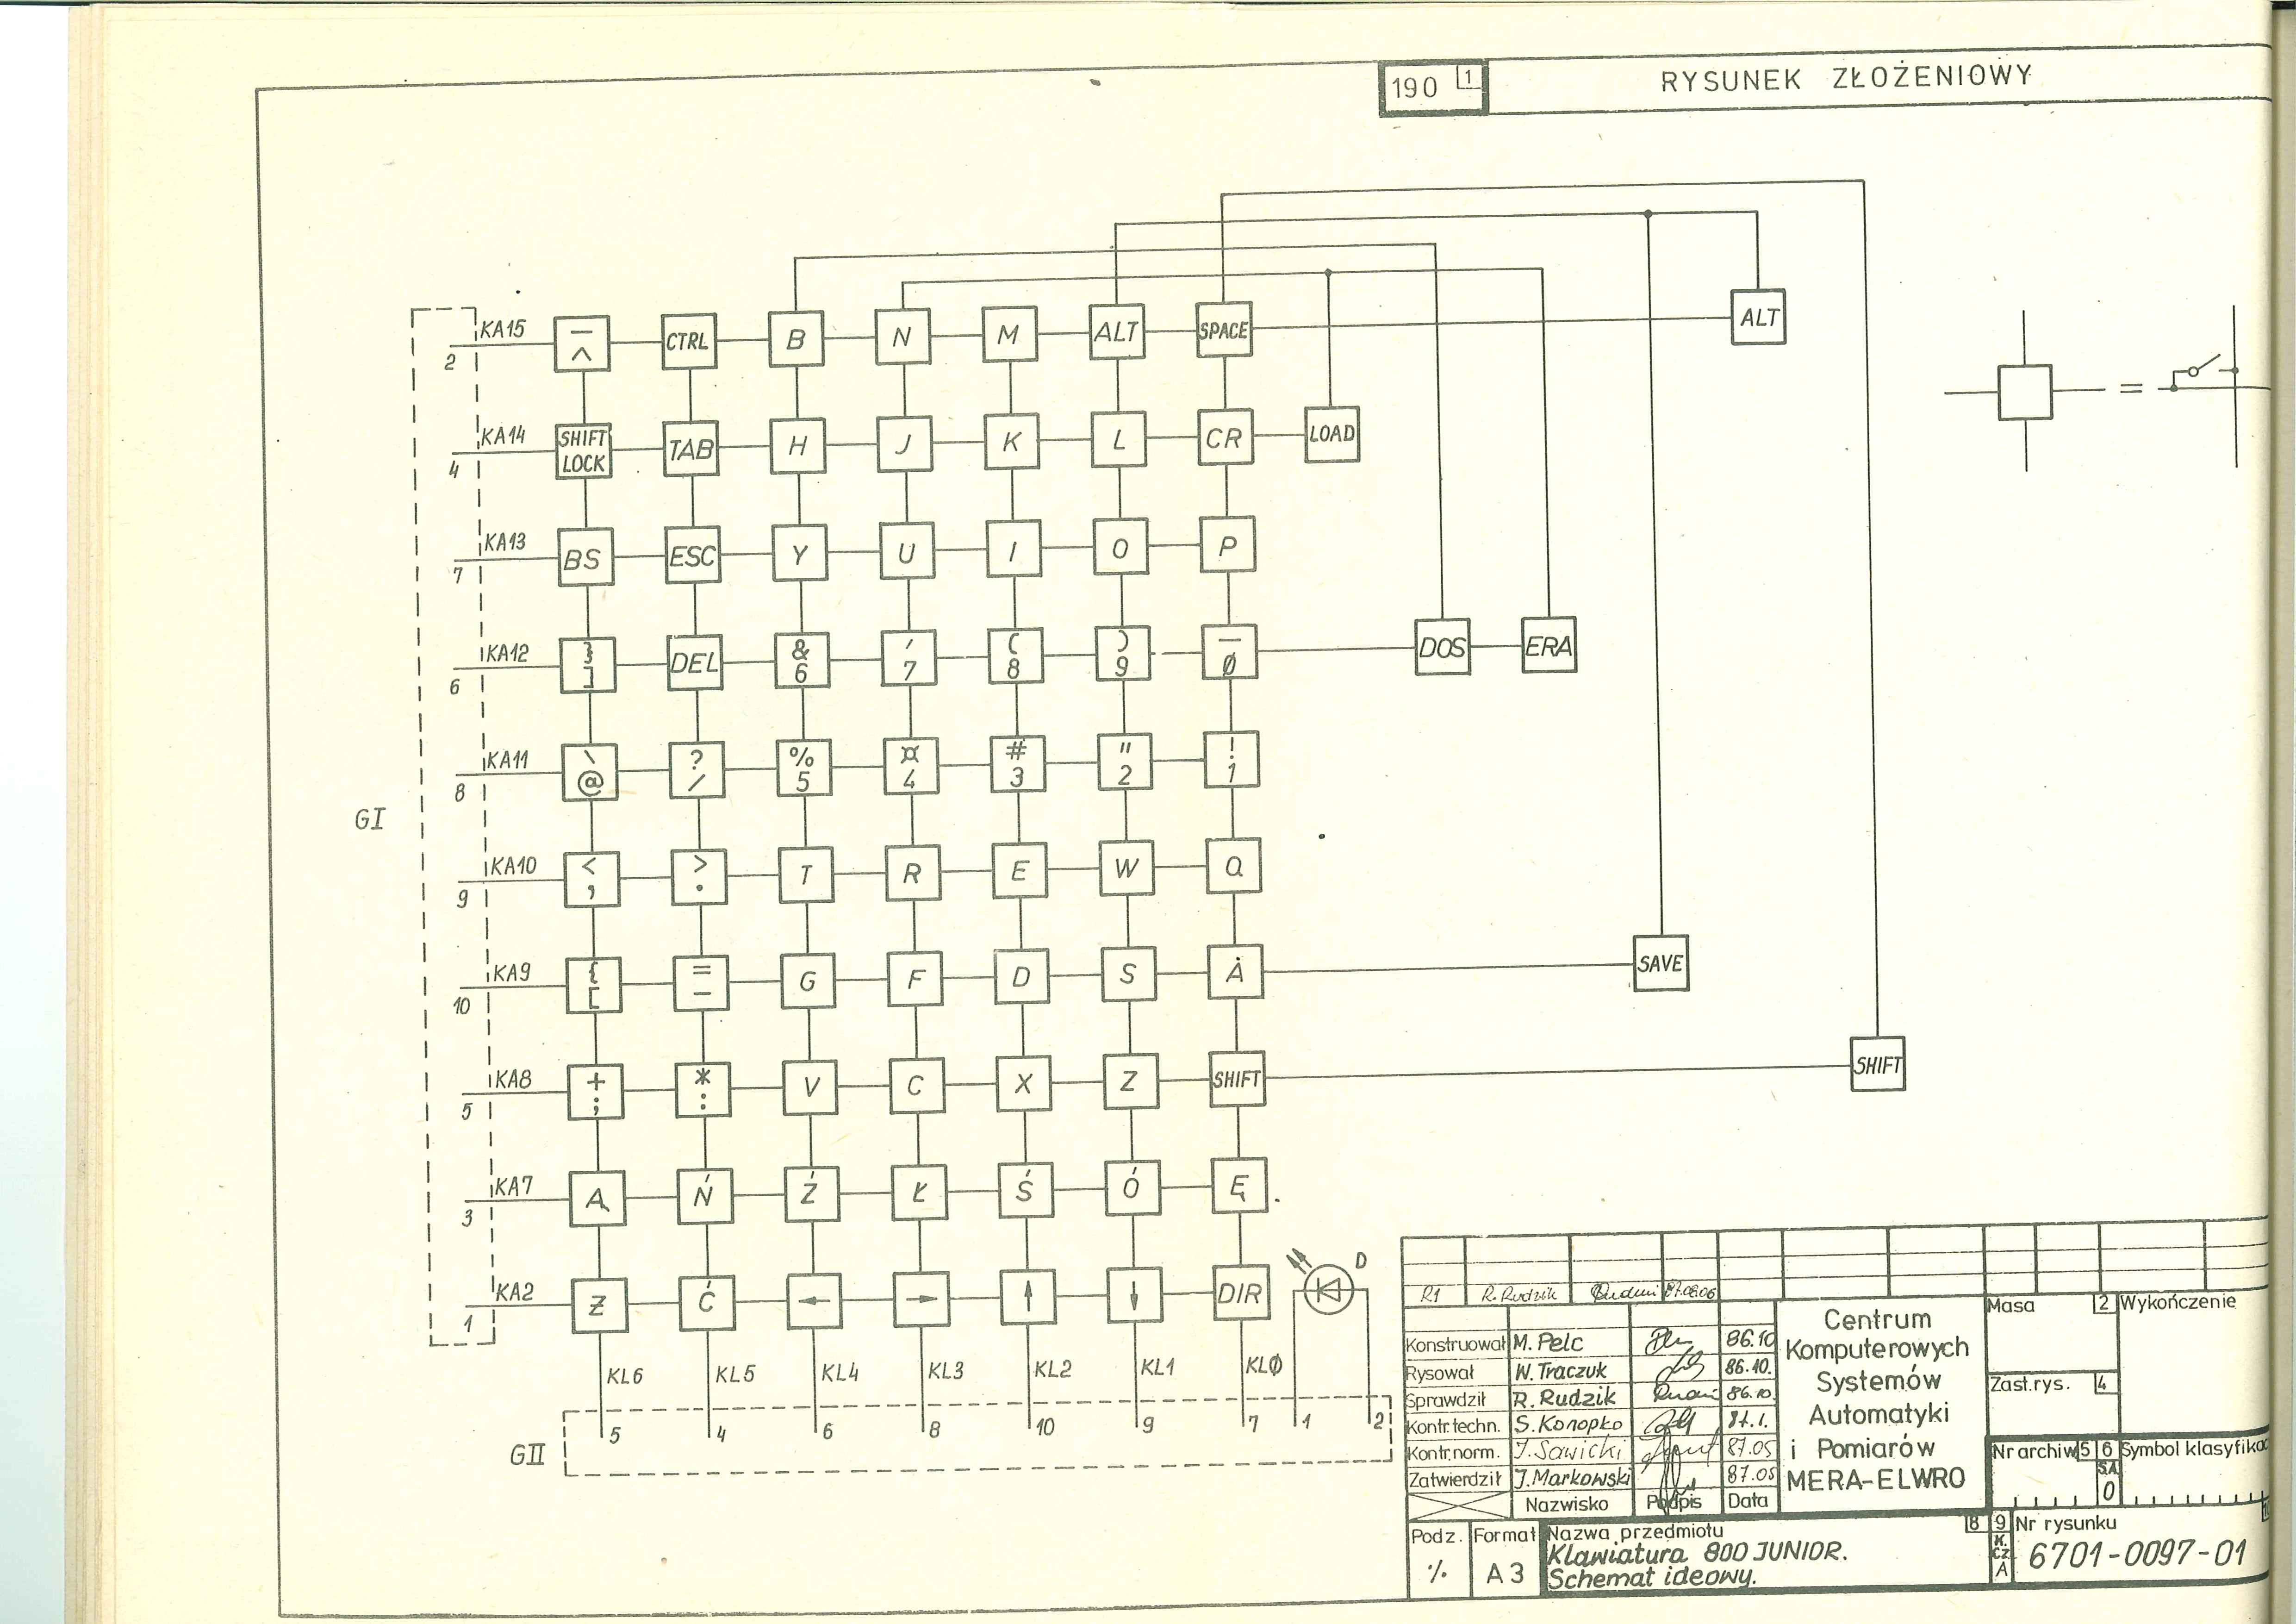 190 1 RYSUNEK ZŁOŻENIOWY
KA15 — ^ CTRL B N M ALT SPACE ALT
2
KA14 SHIFT LOCK TAB H J K L CR LOAD
4
KA13 BS ESC Y U I O P
7
KA12 } ] DEL & 6 ' 7 ( 8 ) 9 — Ø DOS ERA
6
KA11 \ @ ? / % 5 ¤ 4 # 3 " 2 ! 1
8
GI
KA10 < , > . T R E W Q
9
KA9 { [ = — G F D S A SAVE
10
KA8 + ; * : V C X Z SHIFT SHIFT
5
KA7 Ą Ń Ź Ł Ś Ó Ę
3
KA2 Ż Ć ← → ↑ ↓ DIR D
1
KL6 KL5 KL4 KL3 KL2 KL1 KLØ
5 4 6 8 10 9 7 1 2
GII
=
R1 R. Rudzik 87.08.06
Konstruował M. Pelc 86.10
Rysował W. Traczuk 86.10.
Sprawdził R. Rudzik 86.10.
Kontr. techn. S. Konopko 87.1.
Kontr. norm. J. Sawicki 87.05
Zatwierdził J. Markowski 87.05
Nazwisko Podpis Data
Centrum
Komputerowych
Systemów
Automatyki
i Pomiarów
MERA-ELWRO
Masa 2 Wykończenie
Zast. rys. 4
Nr archiw 5 6 Symbol klasyfikac
S.A.
0
Podz. Format Nazwa przedmiotu 8 9 Nr rysunku
·/. A3 Klawiatura 800 JUNIOR.
Schemat ideowy.
K. CZ. A 6701-0097-01